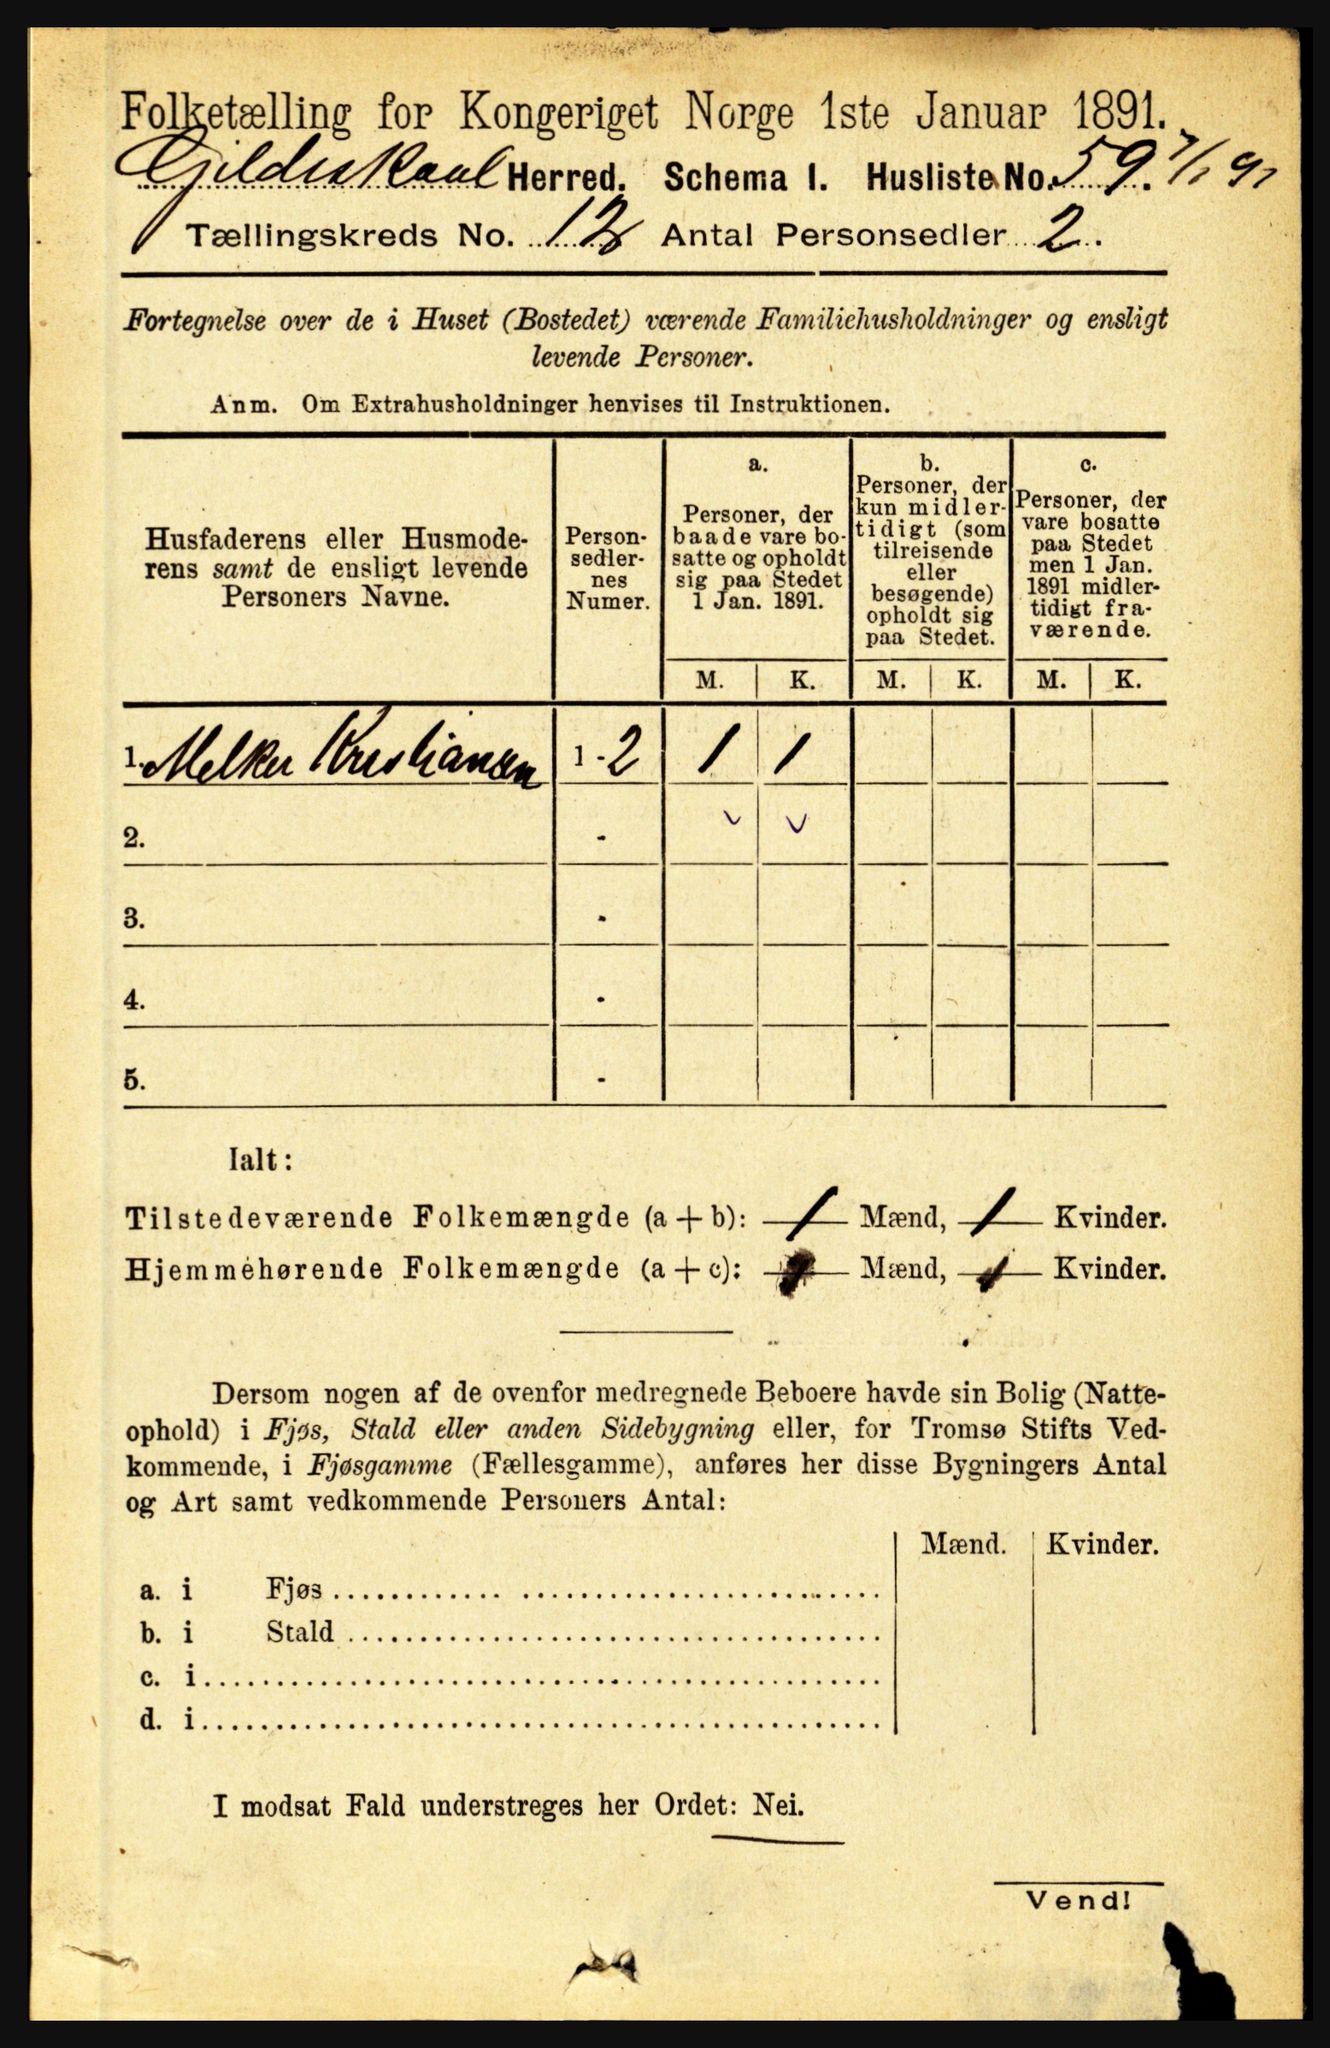 Folketælling for Kongeriget Norge 1ste Januar 1891.
Gildeskaal Herred. Schema 1. Husliste No. 59. 7/1 91
Tællingskreds No. 12 Antal Personsedler 2.
Fortegnelse over de i Huset (Bostedet) værende Familiehusholdninger og ensligt
levende Personer.
Anm. Om Extrahusholdninger henvises til Instruktionen.
Husfaderens eller Husmode-
rens samt de ensligt levende
Personers Navne.
Person-
sedler-
nes
Numer.
a.
Personer, der
baade vare bo-
satte og opholdt
sig paa Stedet
1 Jan. 1891.
b.
Personer, der
kun midler-
tidigt (som
tilreisende
eller
besøgende)
opholdt sig
paa Stedet.
c.
Personer, der
vare bosatte
paa Stedet
men 1 Jan.
1891 midler-
tidigt fra-
værende.
M. K. M. K. M. K.
1. Melker Kristiansen 1 - 2 1 1
2. -
3. -
4. -
5. -
Ialt:
Tilstedeværende Folkemængde (a + b): 1 Mænd, 1 Kvinder.
Hjemmehørende Folkemængde (a + c): 1 Mænd, 1 Kvinder.
Dersom nogen af de ovenfor medregnede Beboere havde sin Bolig (Natte-
ophold) i Fjøs, Stald eller anden Sidebygning eller, for Tromsø Stifts Ved-
kommende, i Fjøsgamme (Fællesgamme), anføres her disse Bygningers Antal
og Art samt vedkommende Personers Antal:
Mænd. Kvinder.
a. i Fjøs
b. i Stald
c. i
d. i
I modsat Fald understreges her Ordet: Nei.
Vend!